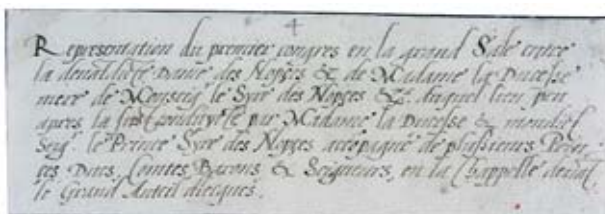 4
Representation du premier congres en la grand Sale entre
la Dame des Nopçes & de Madame la Ducesse
mere de Monseig le Syre des Nopçes &c. Auquel lieu peu
apres la fust conduyte par Madame la Ducesse & mondict
Seig le Prince Syre des Nopçes accopagné de plusieurs Prin
ces Ducs, Comtes Barons & Seigneurs, en la Chappelle devāt
le Grand Autel